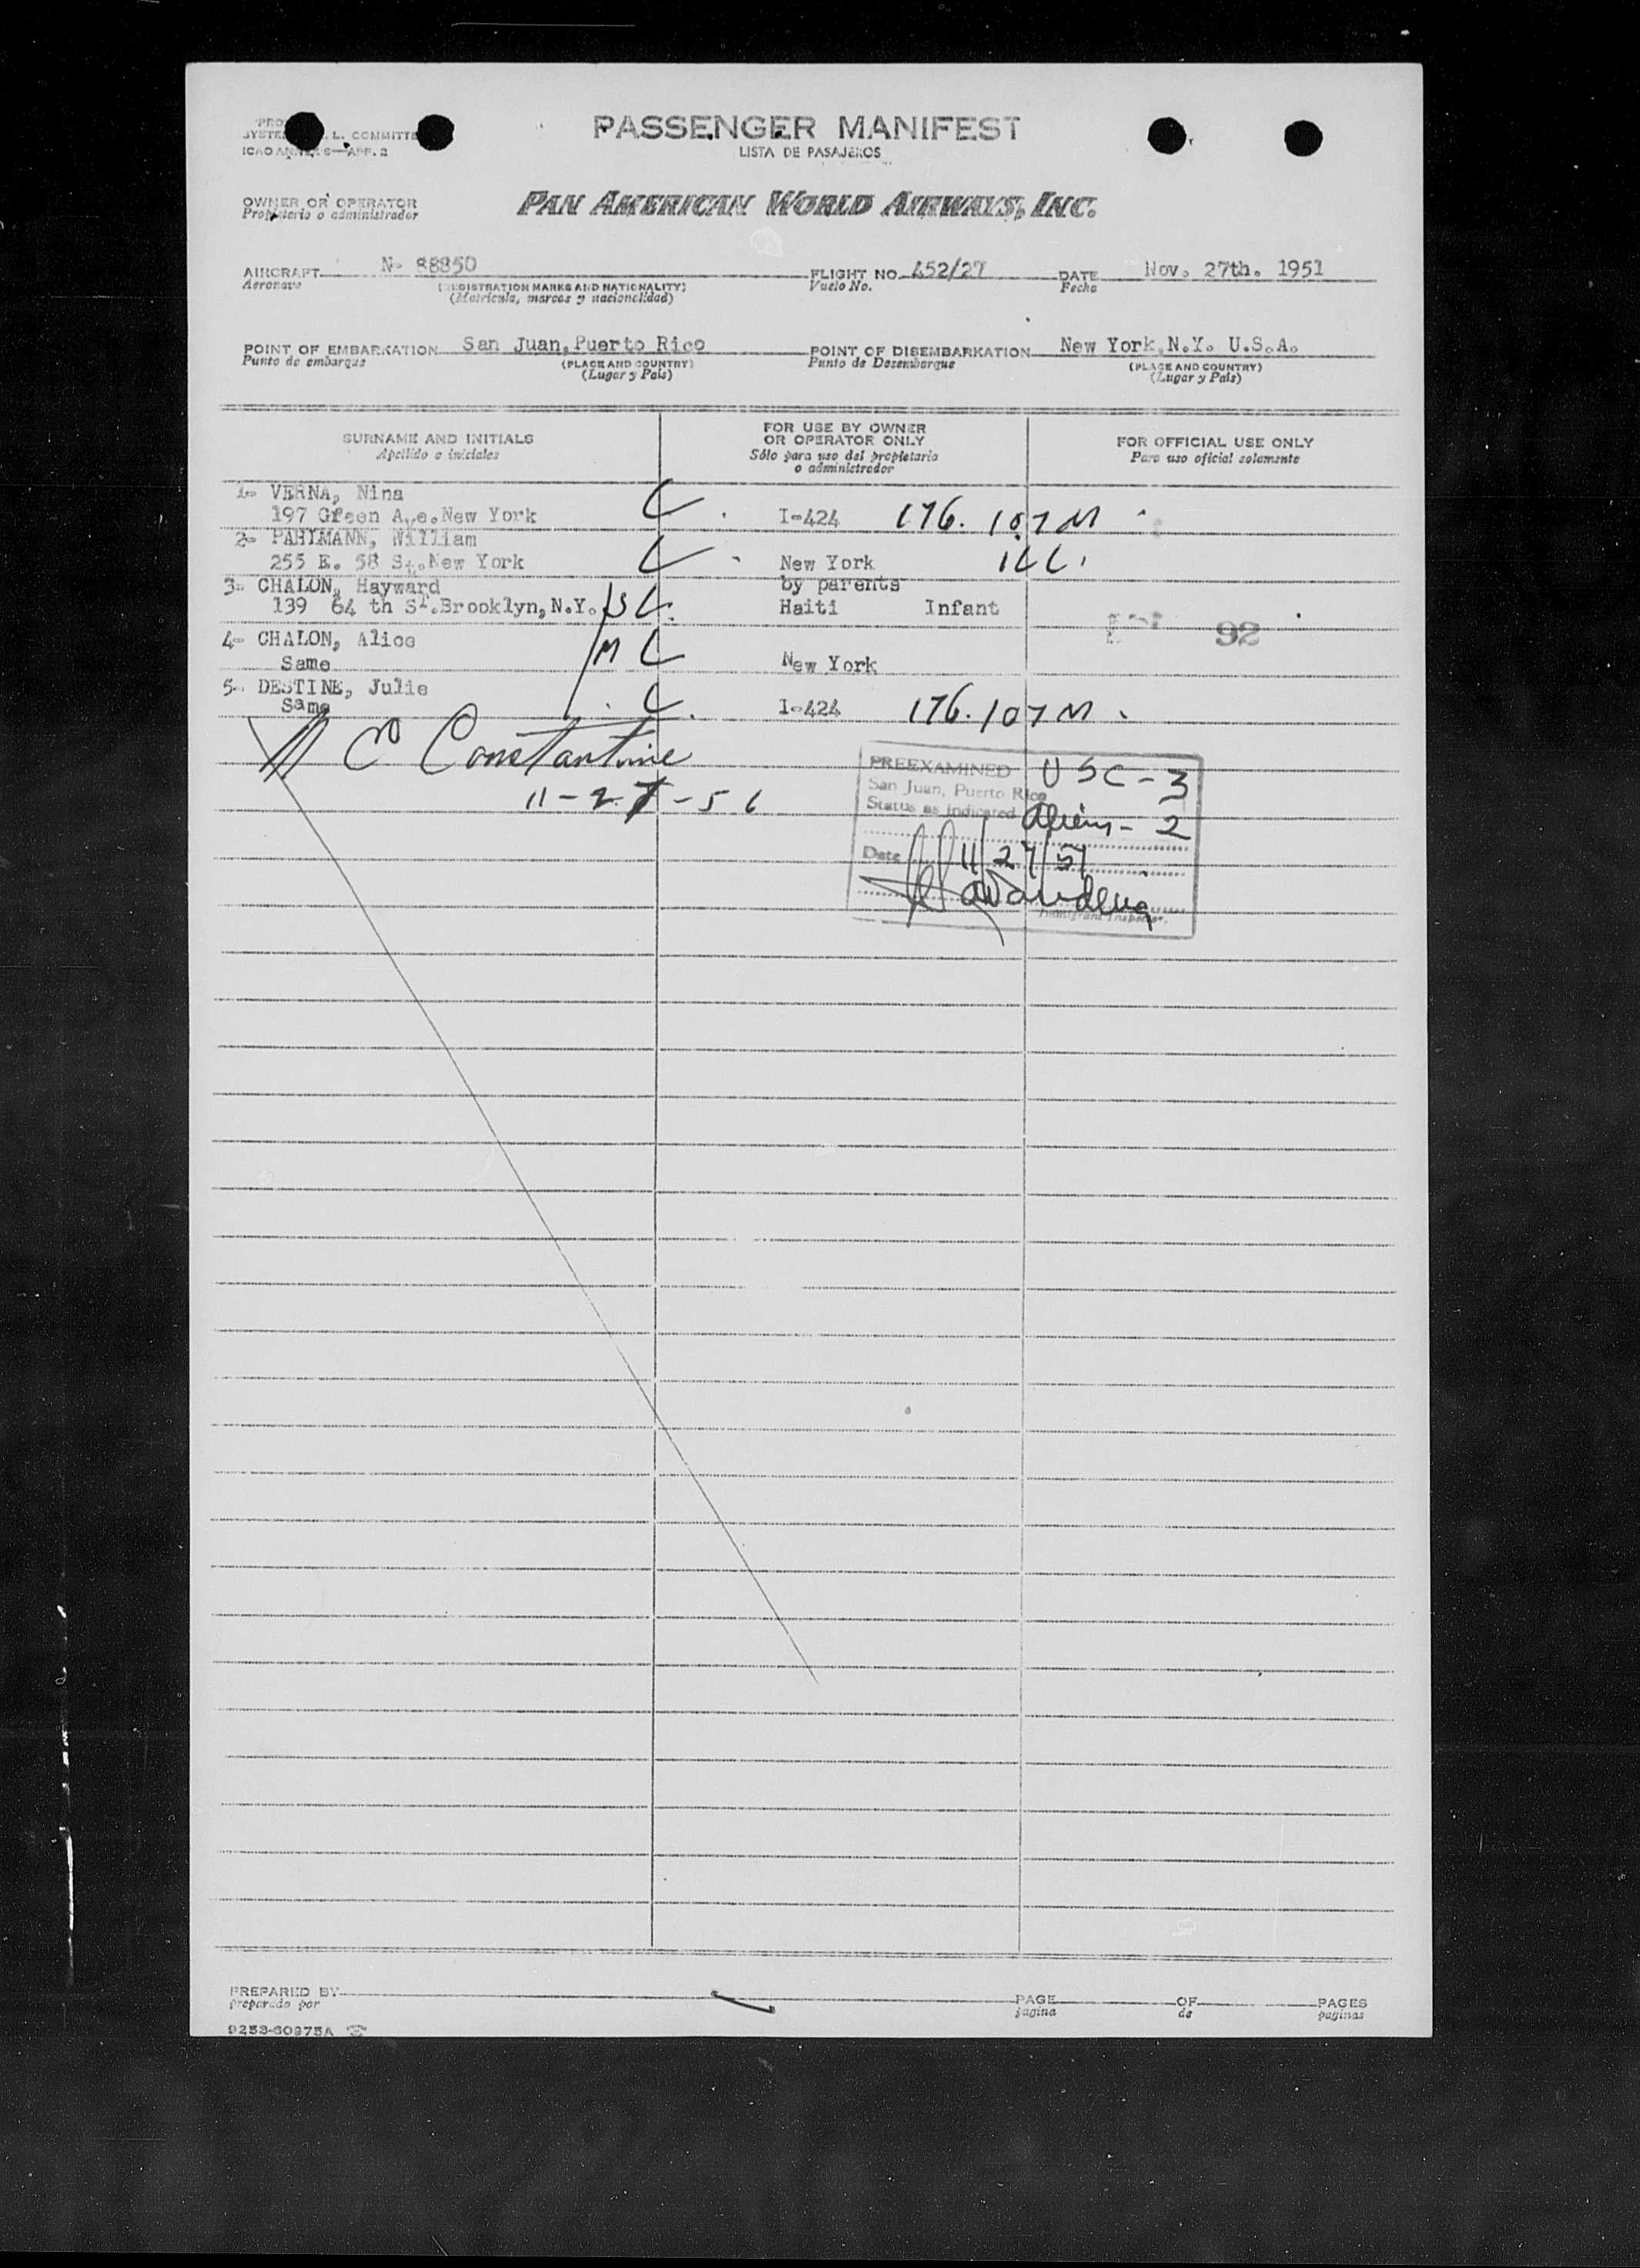 PASSENGER MANIFEST
L. COMMITTE
LISTA DE PASAJEROS
ICAO ANNEX 6—APP. 2
OWNER OR OPERATOR
Propietario o administrador
PAN AMERICAN WORLD AIRWAYS, INC.
AIRCRAFT N- 88850 FLIGHT NO. 452/27 DATE Nov. 27th. 1951
Aeronave (REGISTRATION MARKS AND NATIONALITY) Vuelo No. Fecha
(Matrícula, marcas y nacionalidad)
POINT OF EMBARKATION San Juan, Puerto Rico POINT OF DISEMBARKATION New York, N.Y. U.S.A.
Punto de embarque (PLACE AND COUNTRY) Punto de Desembarque (PLACE AND COUNTRY)
(Lugar y País) (Lugar y País)
SURNAME AND INITIALS
Apellido e iniciales
FOR USE BY OWNER
OR OPERATOR ONLY
Sólo para uso del propietario
o administrador
FOR OFFICIAL USE ONLY
Para uso oficial solamente
1- VERNA, Nina
197 Green Ave. New York C I-424 176.107M
2- PAHTMANN, William
255 E. 58 St. New York C New York
3- CHALON, Hayward by parents
139 64 th St. Brooklyn, N.Y. S C Haiti Infant
92
4- CHALON, Alice M C
Same New York
5- DESTINE, Julie
Same C I-424 176.107M
Constantine
11-27-56
PREEXAMINED USC-3
San Juan, Puerto Rico
Status as indicated Aliens-2
Date 11/27/51
Immigrant Inspector.
PREPARED BY PAGE OF PAGES
preparado por pagina de paginas
9253-60975A